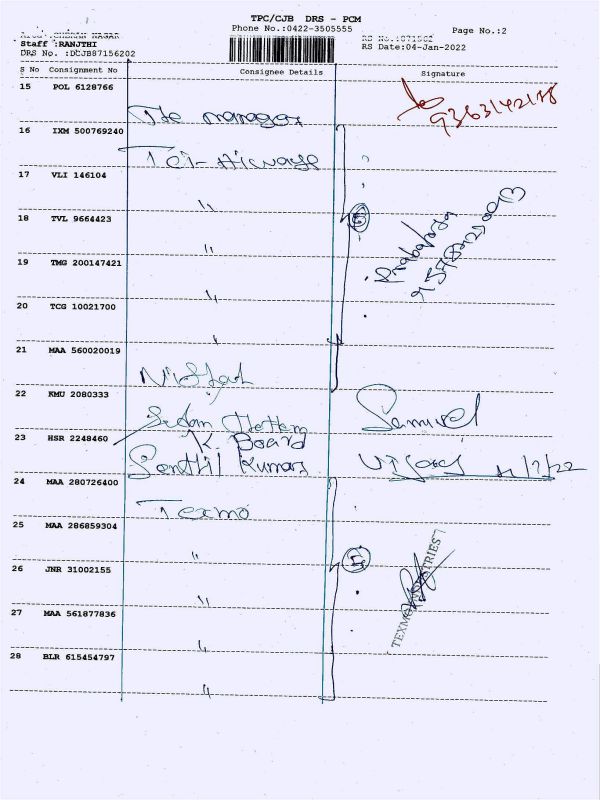 TPC/CJB DRS - PCM
Phone No.:0422-3505555
Page No.:2
Staff :RANJTHI
RS Date:04-Jan-2022
DRS No. :DCJB87156202
S No Consignment No Consignee Details Signature
15 POL 6128766
The manager
9363142178
16 IXM 500769240
17 VLI 146104
"
18 TVL 9664423
"
19 TMG 200147421
"
20 TCG 10021700
"
21 MAA 560020019
22 KMU 2080333
Samuel
K. Board
23 HSR 2248460
Senthil Kumar
24 MAA 280726400
Texmo
25 MAA 286859304
"
TEXMO INDUSTRIES
26 JNR 31002155
"
27 MAA 561877836
"
28 BLR 615454797
"